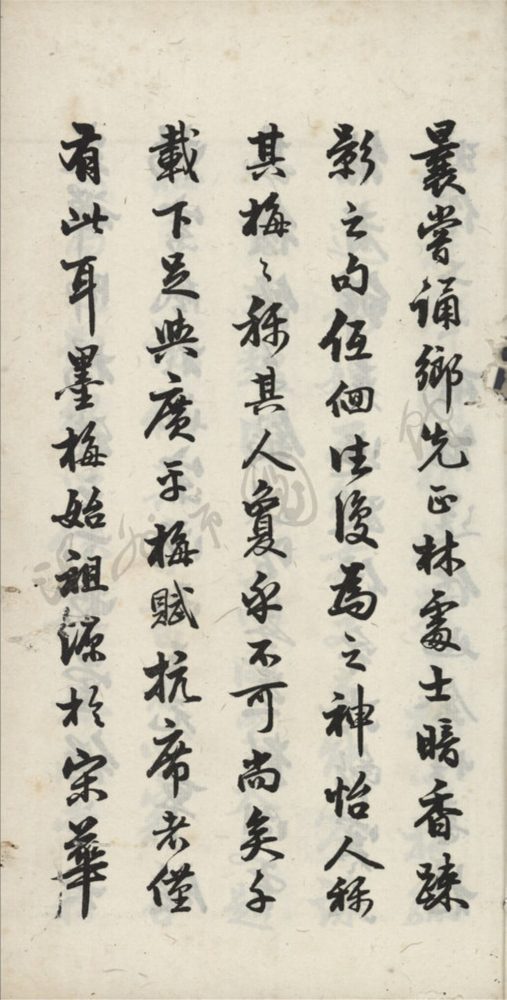 曩嘗誦鄉先正林處士暗香疎
影之句低佪往復為之神怡人稱
其梅〻稱其人夐乎不可尚矣千
載下足與廣平梅賦抗席者僅
有此耳墨梅始祖源於宋華